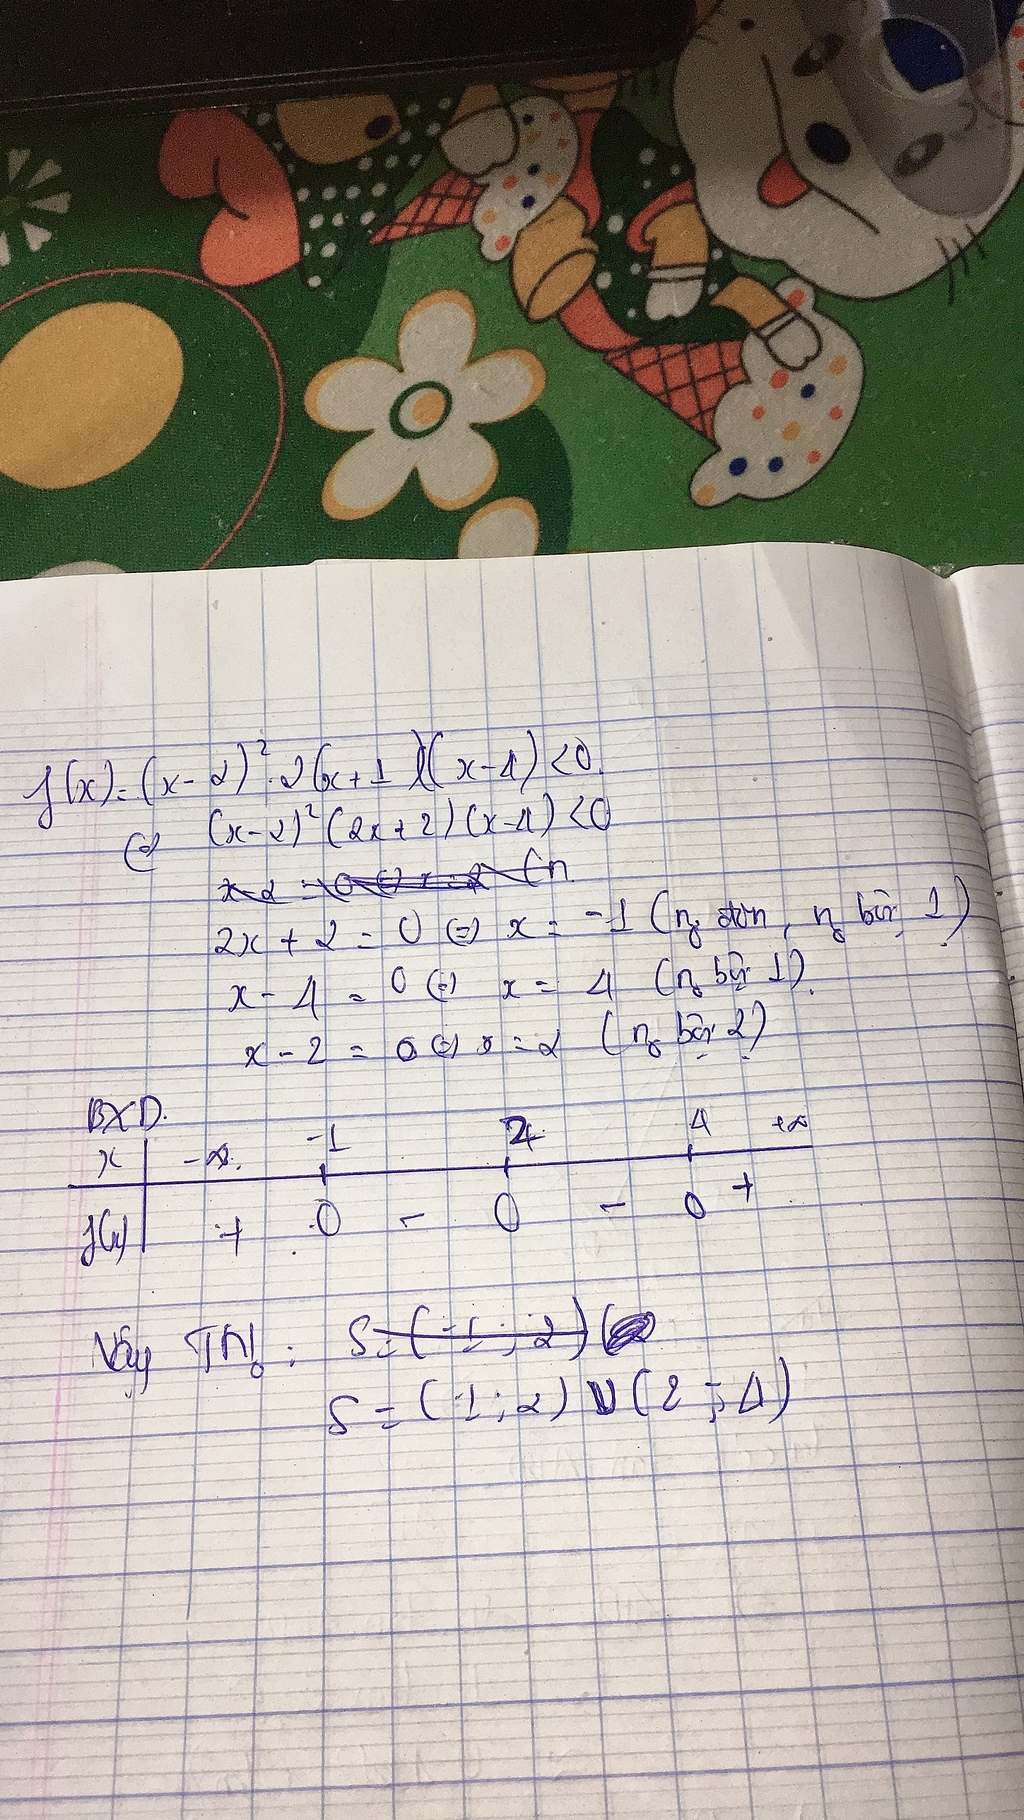 f(x)= (x-2)² · 2(x+1)(x-4) <0.
(x-2)² (2x+2) (x-4) <0
x-2 = 0 x = 2 (n
2x + 2 = 0 (=) x = -1 (n₀ đơn, n₀ bội 1)
x - 4 = 0 (=) x = 4 (n₀ bội 1).
x - 2 = 0 (=) x = 2 (n₀ bội 2)
BXD.
x -∞. -1 2 4 +∞
f(x) + 0 - 0 - 0 +
Vậy TN₀: S=(-1; 2)
S = (-1; 2) ∪ (2; 4)